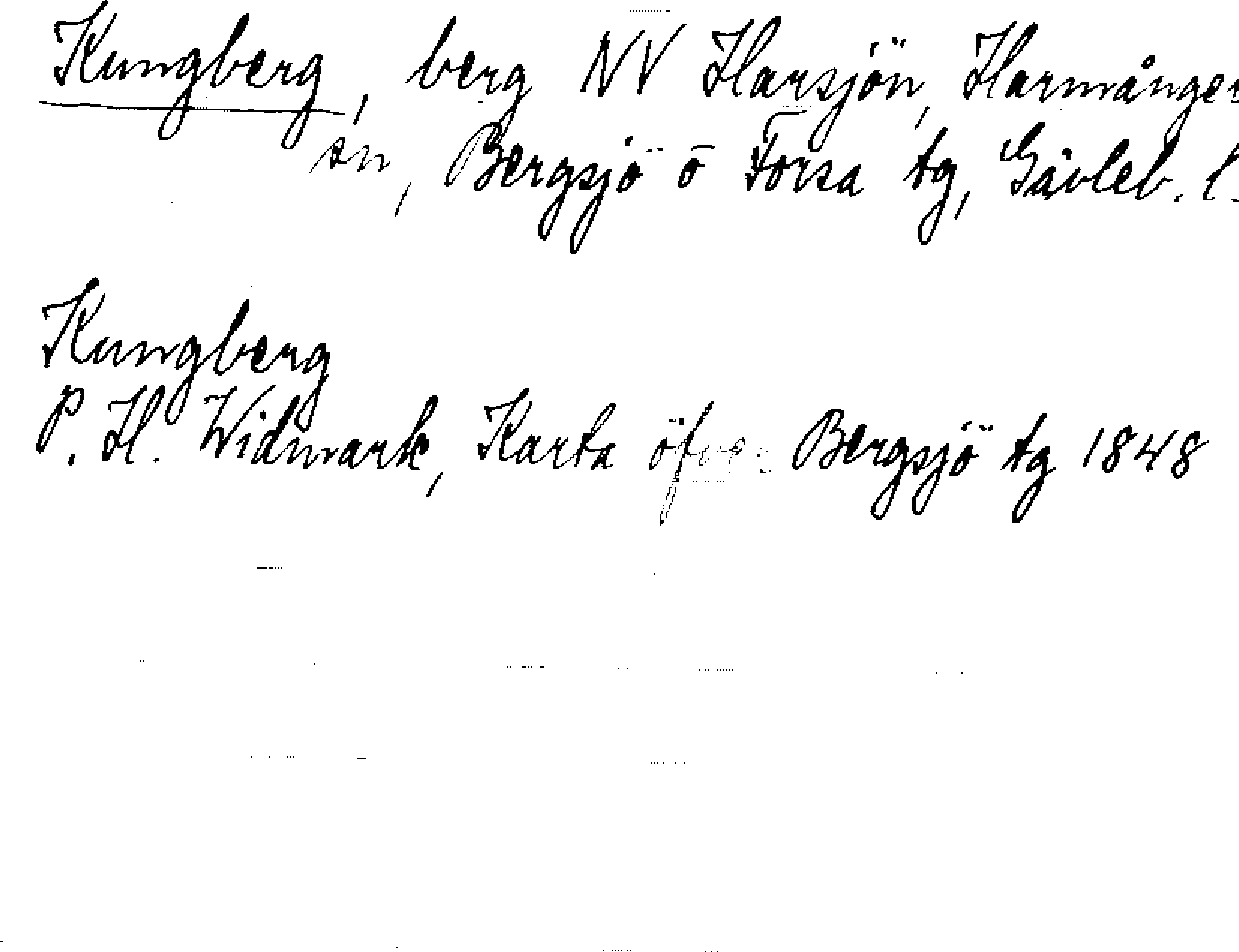 Kungberg, berg NV Harsjön, Harmånger
sn, Bergsjö o Forsa tg, Gävleb. l.
Kungberg
P. H. Widmark, Karta öfver Bergsjö tg 1848